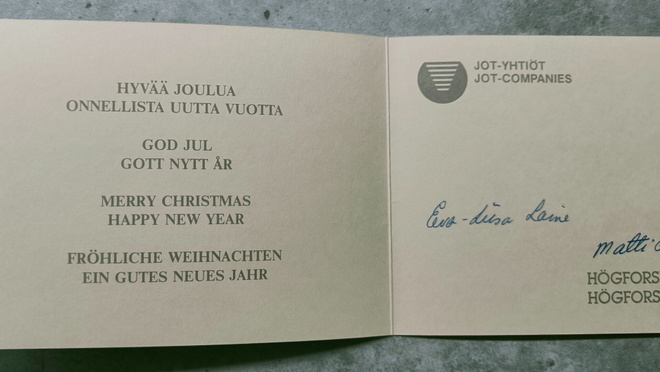 HYVÄÄ JOULUA
ONNELLISTA UUTTA VUOTTA
GOD JUL
GOTT NYTT ÅR
MERRY CHRISTMAS
HAPPY NEW YEAR
FRÖHLICHE WEIHNACHTEN
EIN GUTES NEUES JAHR
JOT-YHTIÖT
JOT-COMPANIES
Eeva-Liisa Laine
Matti
HÖGFORS
HÖGFORS